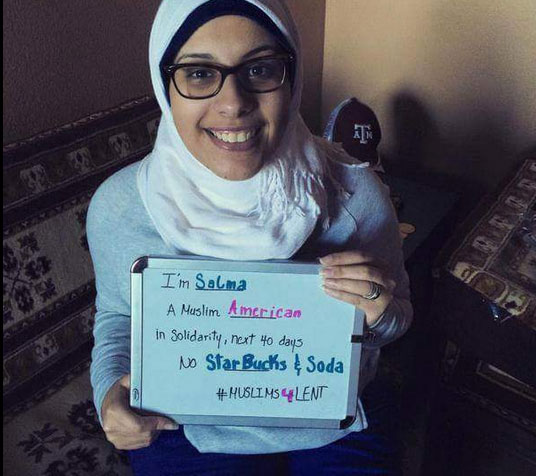 ATM
I'm Salma
A Muslim American
in Solidarity, next 40 days
No StarBucks & Soda
#MUSLIMS4LENT